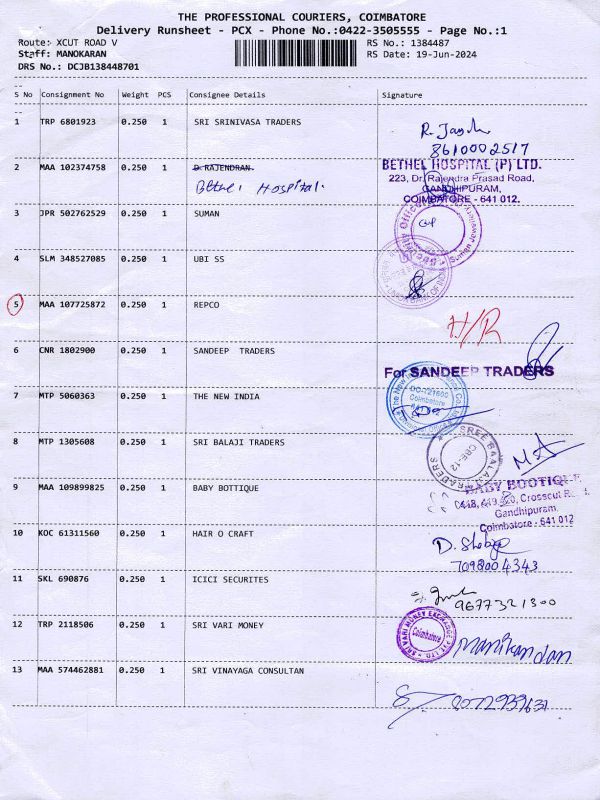 THE PROFESSIONAL COURIERS, COIMBATORE
Delivery Runsheet - PCX - Phone No.:0422-3505555 - Page No.:1
Route: XCUT ROAD V RS No.: 1384487
Staff: MANOKARAN RS Date: 19-Jun-2024
DRS No.: DCJB138448701
S No Consignment No Weight PCS Consignee Details Signature
1 TRP 6801923 0.250 1 SRI SRINIVASA TRADERS
8610002517
2 MAA 102374758 0.250 1 D.RAJENDRAN.
Bethel Hospital.
BETHEL HOSPITAL (P) LTD.
223, Dr. Rajendra Prasad Road,
GANDHIPURAM,
COIMBATORE - 641 012.
3 JPR 502762529 0.250 1 SUMAN
4 SLM 348527085 0.250 1 UBI SS
UNION BANK OF INDIA
5 MAA 107725872 0.250 1 REPCO
H/R
6 CNR 1802900 0.250 1 SANDEEP TRADERS
For SANDEEP TRADERS
7 MTP 5060363 0.250 1 THE NEW INDIA
DO-721600
Coimbatore
8 MTP 1305608 0.250 1 SRI BALAJI TRADERS
CBE-12
9 MAA 109899825 0.250 1 BABY BOTTIQUE
BABY BOOTIQUE
Crosscut
Gandhipuram,
Coimbatore - 641 012
10 KOC 61311560 0.250 1 HAIR O CRAFT
7098004343
11 SKL 690876 0.250 1 ICICI SECURITES
9677321300
12 TRP 2118506 0.250 1 SRI VARI MONEY
SRI VARI MONEY EXCHANGE PVT LTD
Coimbatore
Manikandan
13 MAA 574462881 0.250 1 SRI VINAYAGA CONSULTAN